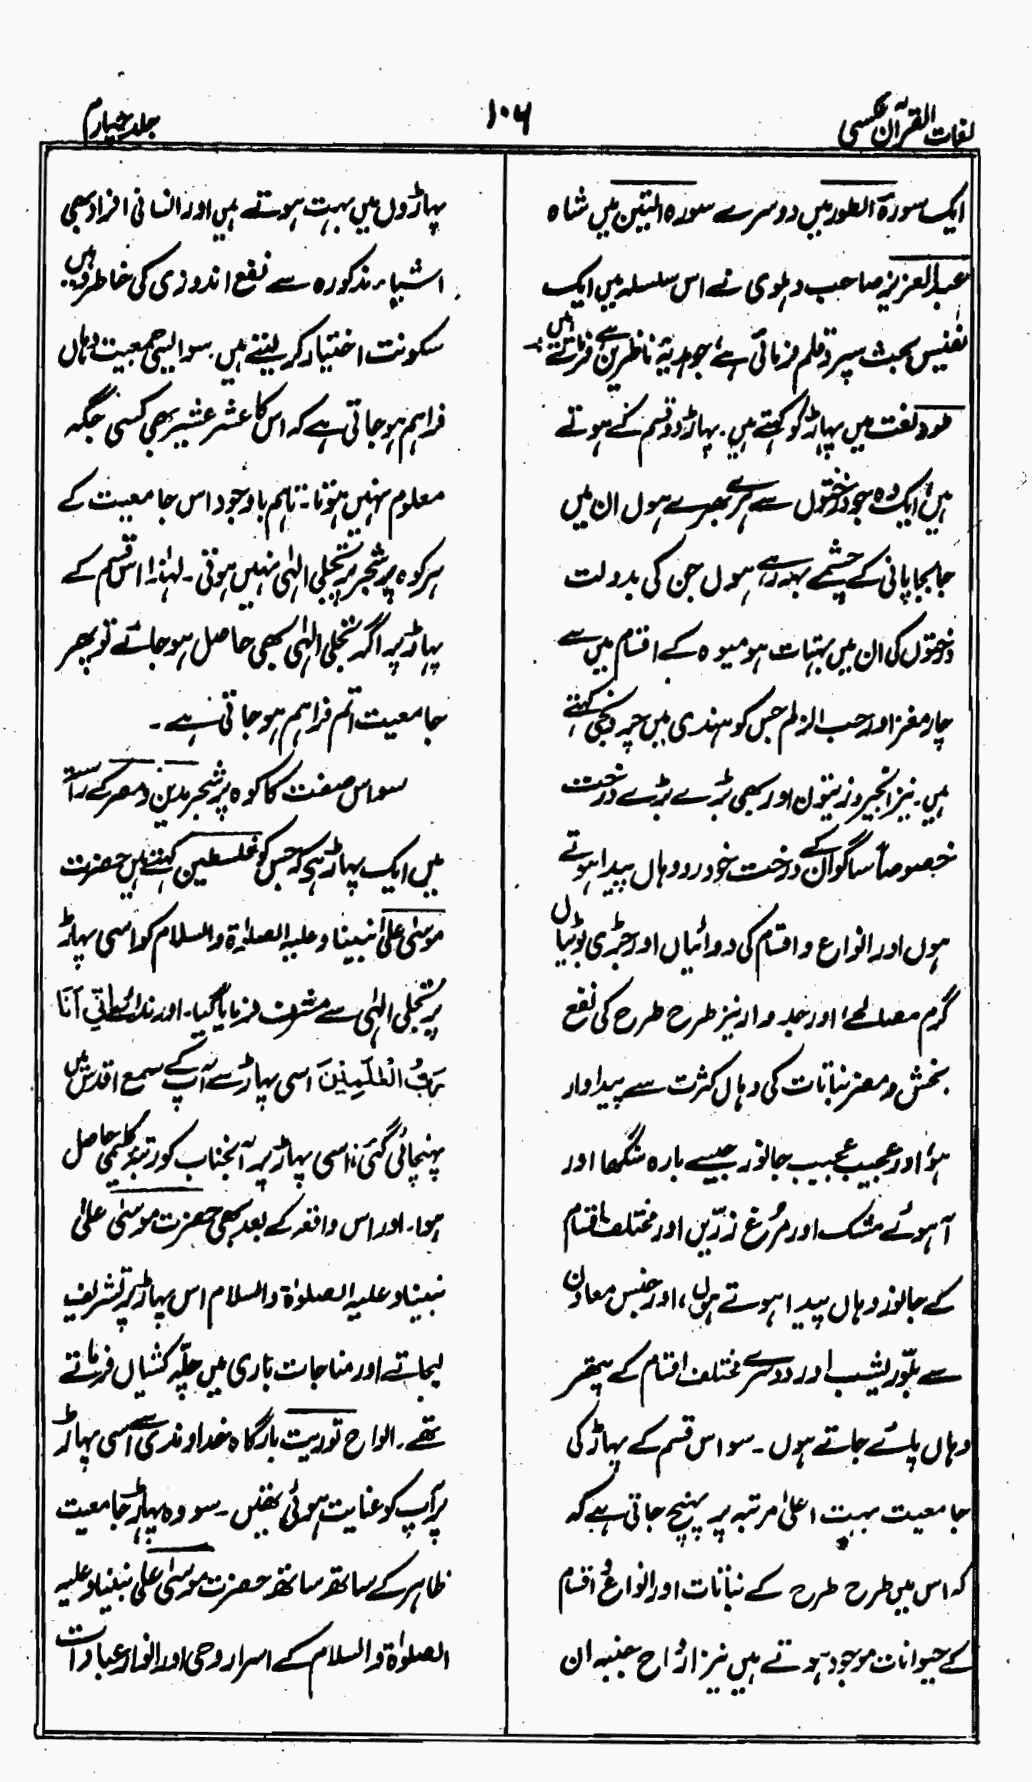 لغات القرآن عکسی
۱۰۶
جلد چہارم
ایک سورۃ الطور میں دوسرے سورہ التین میں شاہ
عبدالعزیز صاحب دہلوی نے اس سلسلہ میں ایک
نفیس بحث سپرد قلم فرمائی ہے، جو ہدیۂ ناظرین ہے فرماتے ہیں:۔
طور لغت میں پہاڑ کو کہتے ہیں۔ پہاڑ دو قسم کے ہوتے
ہیں ایک وہ جو درختوں سے ہرے بھرے ہوں ان میں
جابجا پانی کے چشمے بہہ رہے ہوں جن کی بدولت
درختوں کی ان میں بہتات ہو میوہ کے اقسام میں سے
چارمغز اور حب الزلم جس کو ہندی میں چرونجی کہتے
ہیں۔ نیز انجیر و زیتون اور بھی بڑے بڑے درخت
خصوصاً ساگوان کے درخت خودرو وہاں پیدا ہوتے
ہوں اور انواع و اقسام کی دوائیاں اور جڑی بوٹیاں
گرم مصالحے اور جدوار نیز طرح طرح کی نفع
بخش و مضر نباتات کی وہاں کثرت سے پیداوار
ہو اور عجیب عجیب جانور جیسے بارہ سنگھا اور
آہوئے مشک اور مرغ زرّیں اور مختلف اقسام
کے جانور وہاں پیدا ہوتے ہوں، اور جنس معادن
سے بلّور یشب اور دوسرے مختلف اقسام کے پتھر
وہاں پائے جاتے ہوں۔ سو اس قسم کے پہاڑ کی
جامعیت بہت اعلیٰ مرتبہ پر پہنچ جاتی ہے کہ
کہ اس میں طرح طرح کے نباتات اور انواع و اقسام
کے حیوانات موجود ہوتے ہیں نیز ارواح جنبہ ان
پہاڑوں میں بہت ہوتے ہیں اور انسانی افراد بھی
اشیاء مذکورہ سے نفع اندوزی کی خاطر وہیں
سکونت اختیار کر لیتے ہیں۔ سو ایسی جمعیت وہاں
فراہم ہو جاتی ہے کہ اس کا عشر عشیر بھی کسی جگہ
معلوم نہیں ہوتا۔ تاہم باوجود اس جامعیت کے
ہر کوہ پر شجر پر تجلی الٰہی نہیں ہوتی۔ لہٰذا اس قسم کے
پہاڑ پر اگر تجلی الٰہی بھی حاصل ہو جائے تو پھر
جامعیت اتم فراہم ہو جاتی ہے۔
سو اس صفت کا کوہ پر شجر مدین و مصر کے راستہ
میں ایک پہاڑ ہے کہ جس کو فلسطین کہتے ہیں حضرت
موسیٰ علیٰ نبینا و علیہ الصلوٰۃ والسلام کو اسی پہاڑ
پر تجلی الٰہی سے مشرف فرمایا گیا۔ اور ندائے اِنِّیْ اَنَا
رَبُّ الْعٰلَمِیْنَ اسی پہاڑ سے آپ کے سمع اقدس میں
پہنچائی گئی، اسی پہاڑ پر آنجناب کو رتبۂ کلیمی حاصل
ہوا۔ اور اس واقعہ کے بعد بھی حضرت موسیٰ علیٰ
نبینا و علیہ الصلوٰۃ والسلام اس پہاڑ پر تشریف
لیجاتے اور مناجات باری میں چلّہ کشیاں فرماتے
تھے۔ الواح توریت بارگاہ خداوندی سے اسی پہاڑ
پر آپ کو عنایت ہوئی تھیں۔ سو وہ پہاڑ جامعیت
ظاہر کے ساتھ ساتھ حضرت موسیٰ علیٰ نبینا و علیہ
الصلوٰۃ والسلام کے اسرار وحی اور انوار عبادات